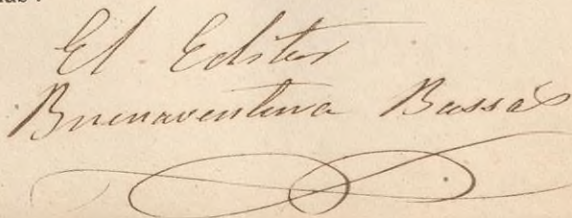 El Editor
Buenaventura Bassas